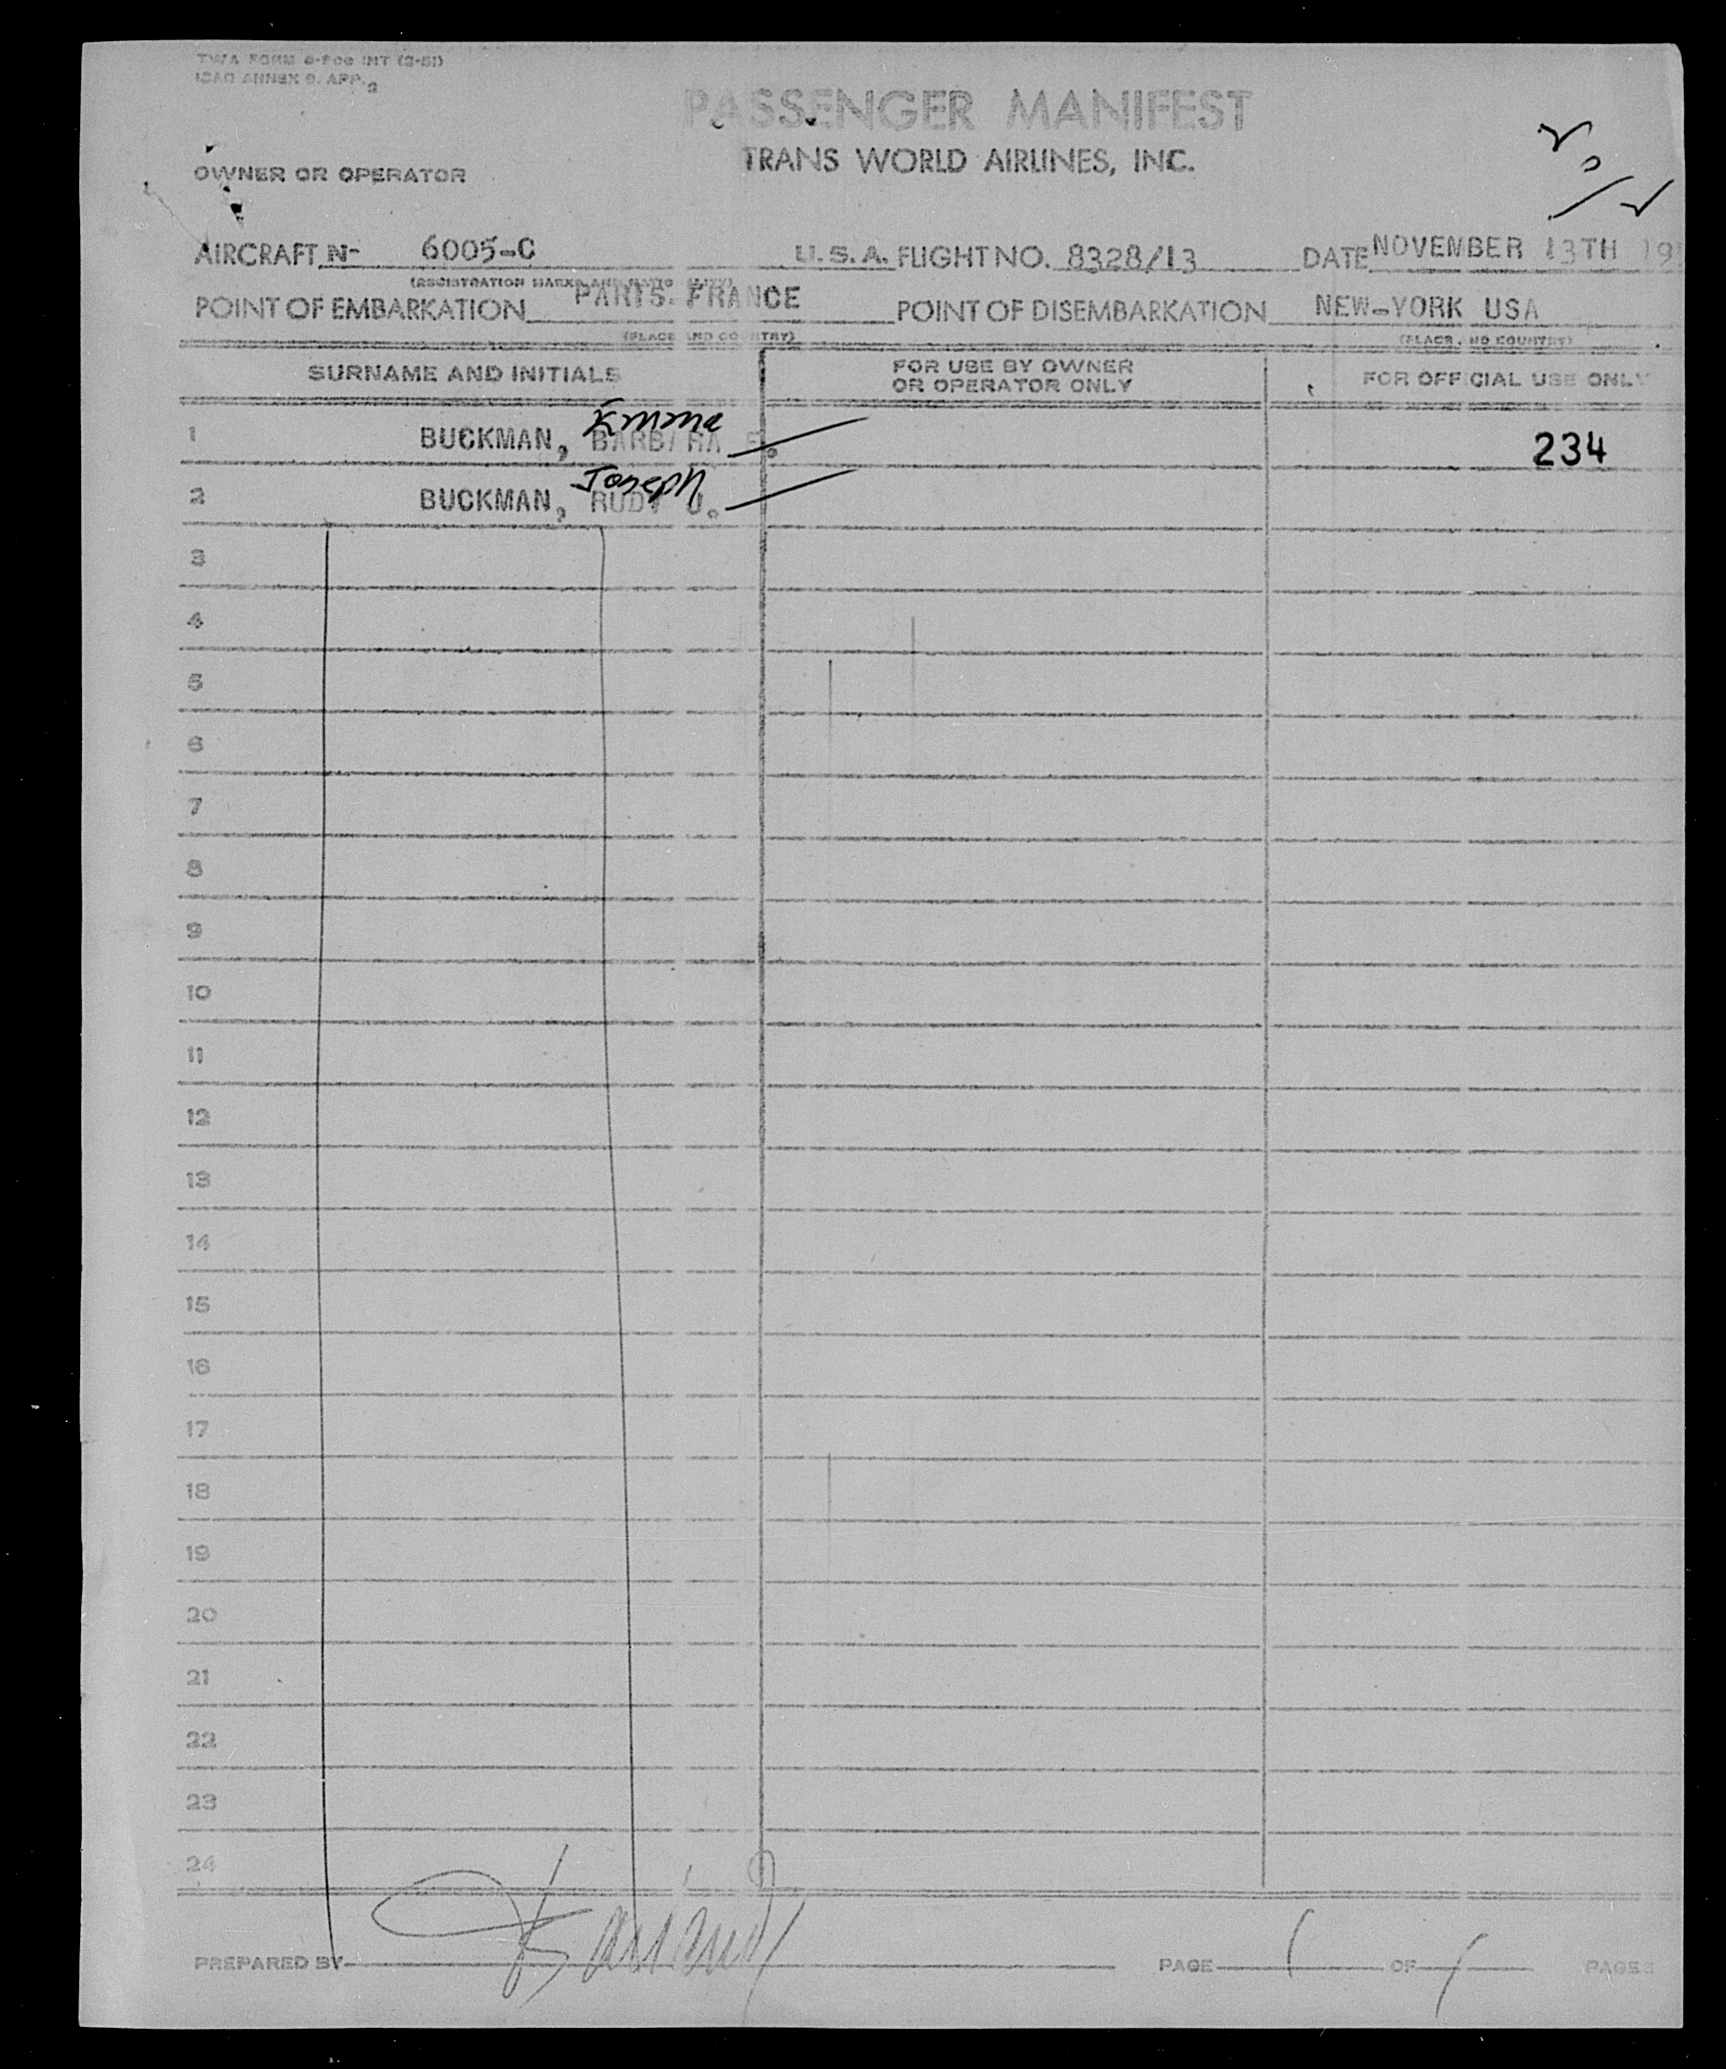 TWA FORM
ICAO ANNEX 9. APP. 2
PASSENGER MANIFEST
TRANS WORLD AIRLINES, INC.
OWNER OR OPERATOR
AIRCRAFT N- 6005-C U.S.A. FLIGHT NO. 8328/13 DATE NOVEMBER 13TH
(REGISTRATION MARKS AND
POINT OF EMBARKATION PARIS. FRANCE POINT OF DISEMBARKATION NEW-YORK USA
(PLACE AND COUNTRY) (PLACE AND COUNTRY)
SURNAME AND INITIALS FOR USE BY OWNER OR OPERATOR ONLY FOR OFFICIAL USE ONLY
Emma
1 BUCKMAN, BARBARA E. 234
Joseph
2 BUCKMAN, RUDY J.
3
4
5
6
7
8
9
10
11
12
13
14
15
16
17
18
19
20
21
22
23
24
PREPARED BY PAGE 1 OF 1 PAGES